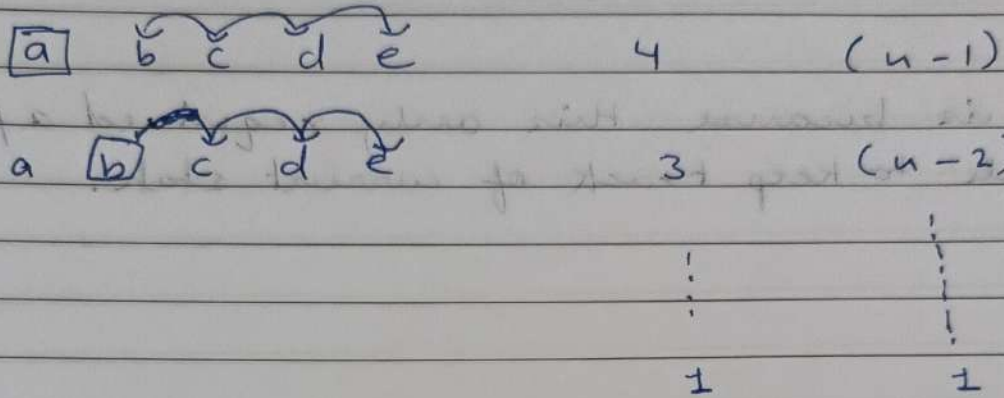 a b c d e 4 (n-1)
a b c d e 3 (n-2)
1 1